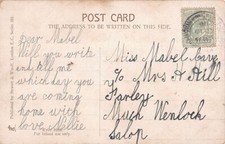 POST CARD
THE ADDRESS TO BE WRITTEN ON THIS SIDE.
Dear Mabel
Will you write
and tell me
which day you
are coming
home with
love
For Inland use only.
Miss Mabel
c/o Mrs A Hill
Farley
Much Wenlock
Salop